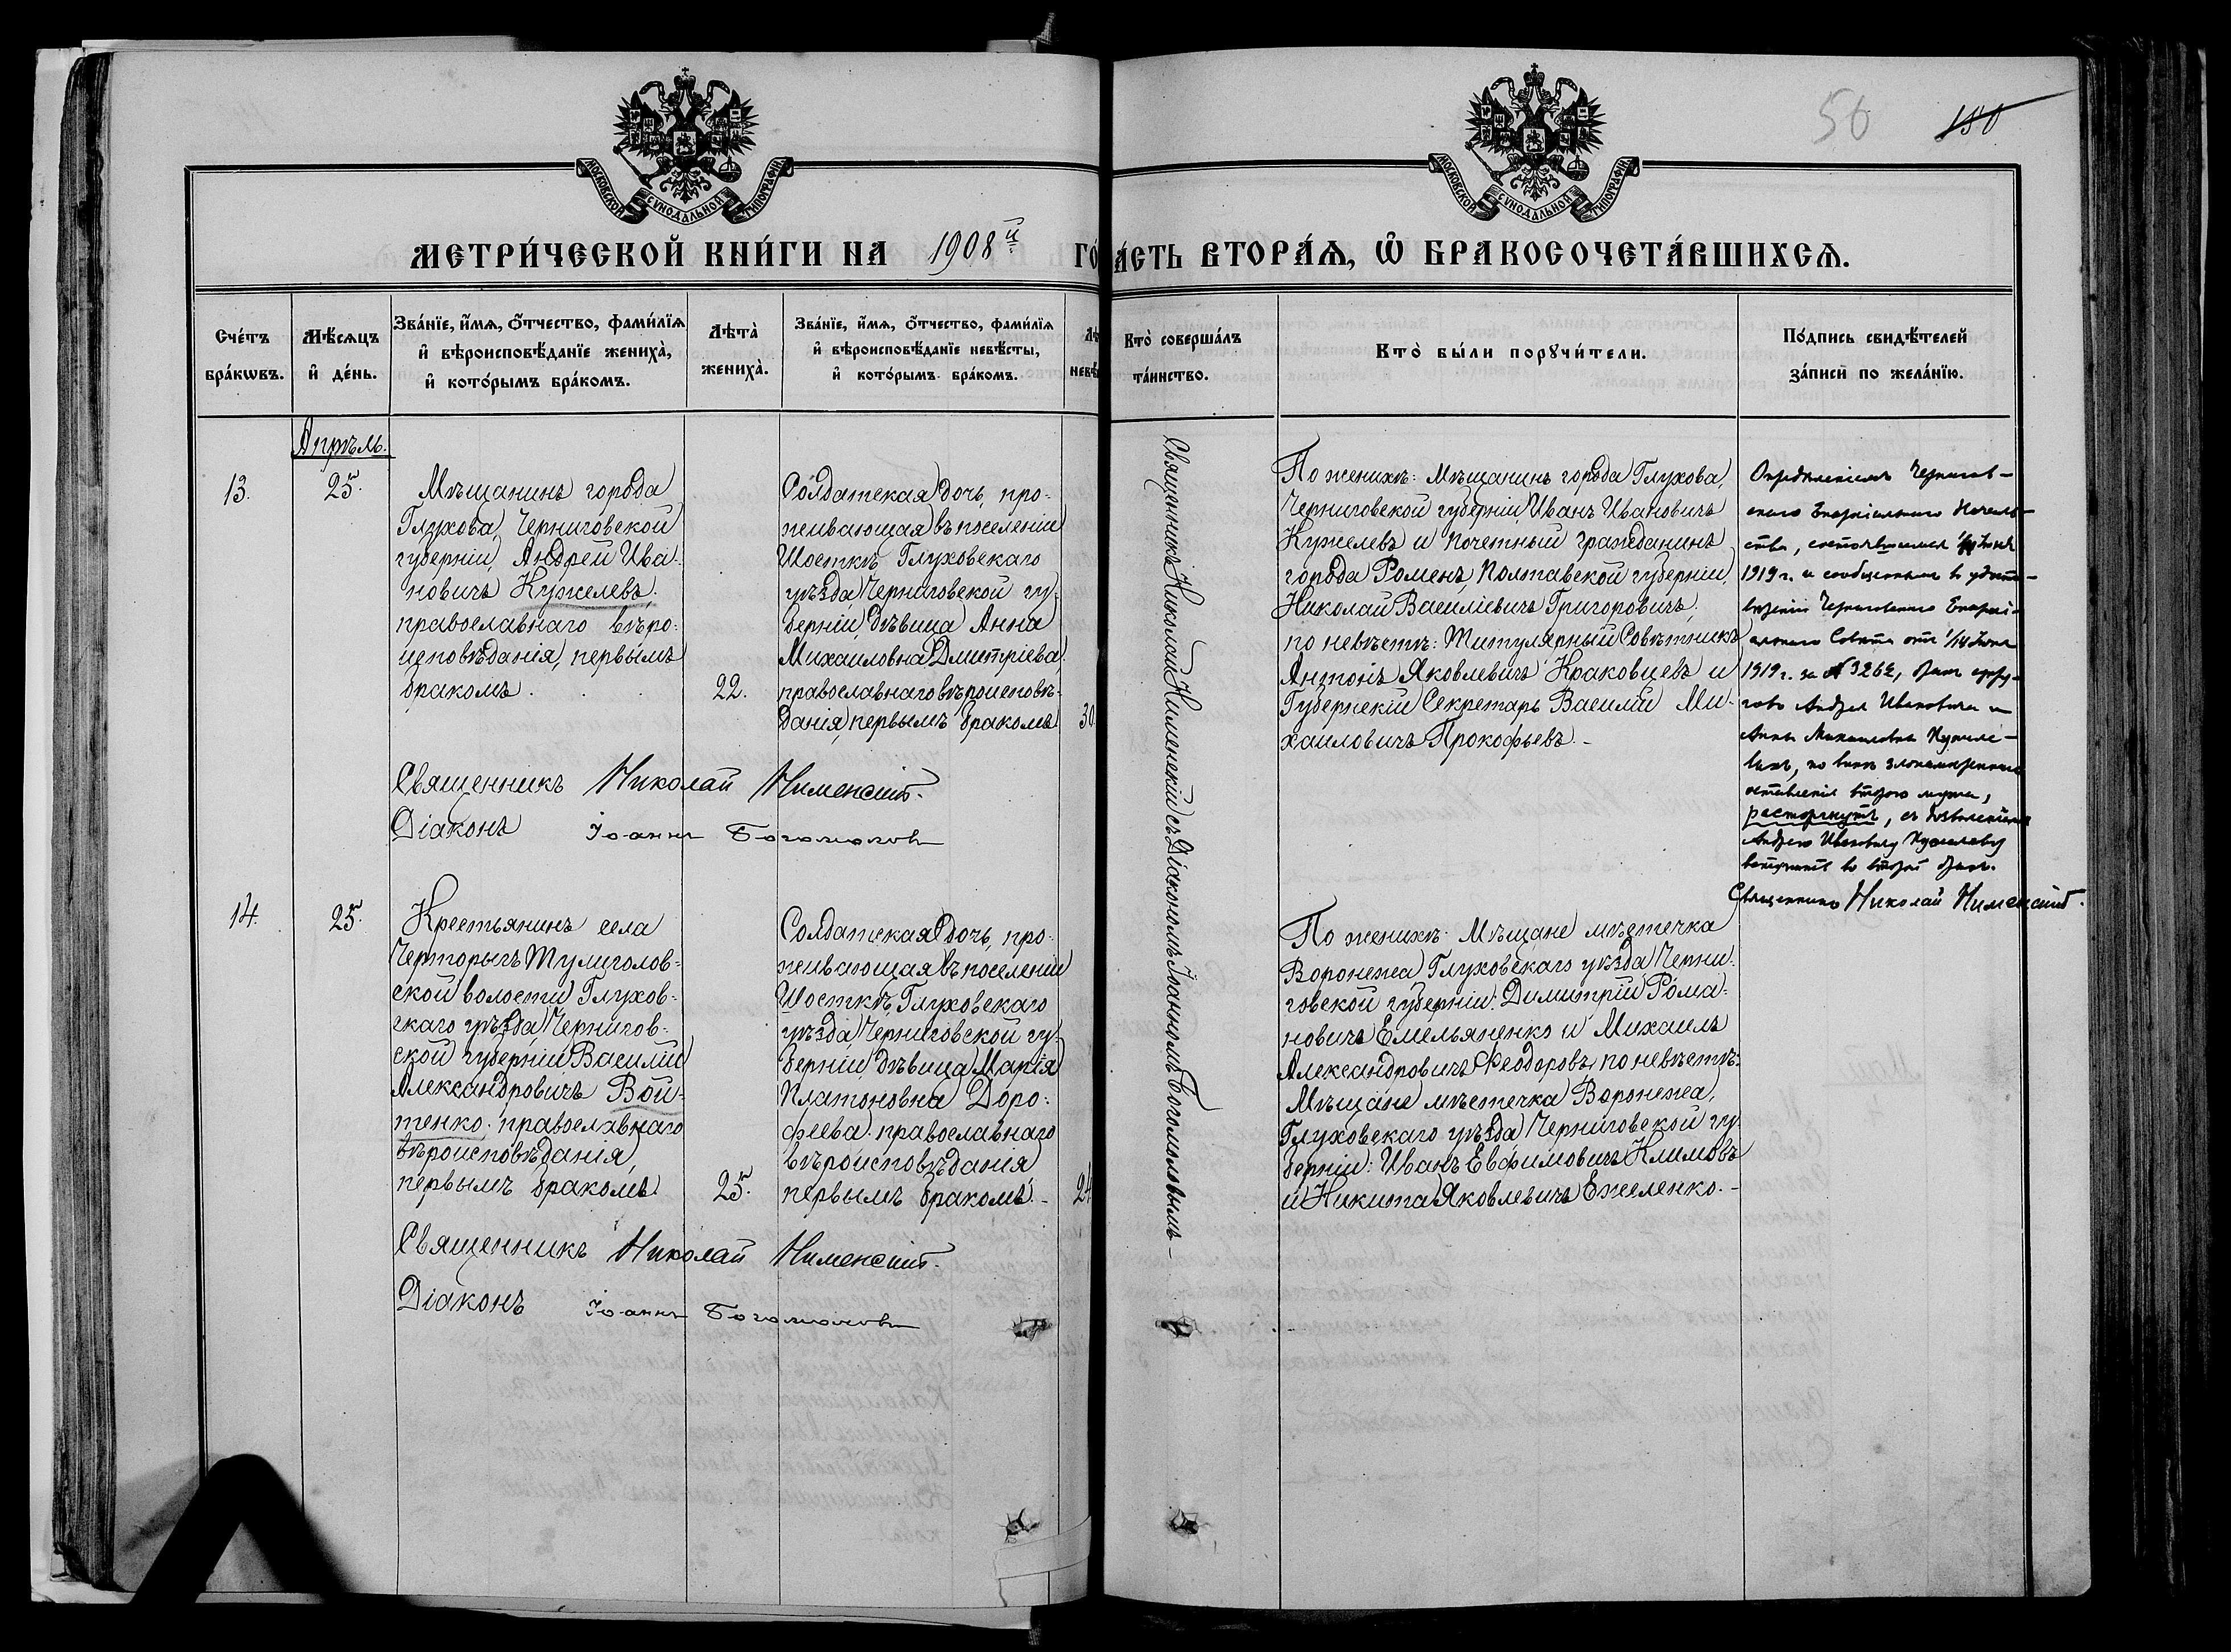 50
150
МОСКОВСКОЙ СѴНОДАЛЬНОЙ ТИПОГРАФІИ
МЕТРИ́ЧЕСКОЙ КНИ́ГИ НА 1908й ГО́
МОСКОВСКОЙ СѴНОДАЛЬНОЙ ТИПОГРАФІИ
А́СТЬ ВТОРА́Я, Ѡ БРАКОСОЧЕТА́ВШИХСЯ.
Сче́тъ
бра́кѡвъ.
Мѣ́сяцъ
и҆ де́нь.
Зва́нїе, и҆́мя, ѻ҆́тчество, фами́лїя
и҆ вѣроисповѣ́данїе жениха̀,
и҆ кото́рымъ бра́комъ.
Лѣта̀
жениха̀.
Зва́нїе, и҆́мя, ѻ҆́тчество, фами́лїя
и҆ вѣроисповѣ́данїе невѣ́сты,
и҆ кото́рымъ бра́комъ.
Лѣ
невѣ
Кто̀ соверша́лъ
та́инство.
Кто̀ бы́ли порꙋчи́тели.
По́дпись свидѣ́телей
за́писи по жела́нїю.
Апрѣль.
13.
25.
Мѣщанинъ города
Глухова, Черниговской
губерніи, Андрей Ива-
новичъ Кужелевъ,
православнаго вѣро-
исповѣданія, первымъ
бракомъ.
22.
Солдатская дочь, про-
живающая въ поселеніи
Шосткѣ, Глуховскаго
уѣзда, Черниговской гу-
берніи, дѣвица Анна
Михаиловна Дмитріева,
православнаго вѣроисповѣ-
данія, первымъ бракомъ
30.
Священникъ Николай Нименскій.
Діаконъ Іоаннъ Богомоловъ
Священникъ Николай Нименскій съ Діакономъ Іоанномъ Богомоловымъ –
По женихѣ: Мѣщанинъ города Глухова,
Черниговской губерніи, Иванъ Ивановичъ
Кужелевъ и почетный гражданинъ
города Роменъ, Полтавской губерніи,
Николай Василіевичъ Григоровичъ,
по невѣстѣ: Титулярный Совѣтникъ
Антонъ Яковлевичъ Краковцевъ и
Губернскій Секретарь Василій Ми-
хаиловичъ Прокофьевъ. –
Опредѣленіемъ Чернигов-
скаго Епархіальнаго Началь-
ства, состоявшимся Іюня
1919 г. и сообщеннымъ въ
Черниговскаго Епархі-
альнаго Совѣта отъ 1/14 Іюня
1919 г. за № 3262, бракъ супру-
говъ Андрея Ивановича и
Анны Михаиловны Кужеле-
выхъ, по винѣ злонамѣреннаго
оставленія втораго мужа,
расторгнутъ, съ дозволеніемъ
Андрею Ивановичу Кужелеву
вступить во второй бракъ.
Священникъ Николай Нименскій.
14.
25.
Крестьянинъ села
Черторыгъ Тулиголов-
ской волости Глухов-
скаго уѣзда Чернигов-
ской губерніи Василій
Александровичъ Вой-
тенко, православнаго
вѣроисповѣданія,
первымъ бракомъ
25.
Солдатская дочь, про-
живающая въ поселеніи
Шосткѣ, Глуховскаго
уѣзда, Черниговской гу-
берніи, дѣвица Марія
Платоновна Доро-
феева, православнаго
вѣроисповѣданія
первымъ бракомъ. –
24
Священникъ Николай Нименскій.
Діаконъ Іоаннъ Богомоловъ
По женихѣ: Мѣщане мѣстечка
Воронежа Глуховскаго уѣзда Черни-
говской губерніи: Димитрій Рома-
новичъ Емельяненко и Михаилъ
Александровичъ Ѳеодоровъ, по невѣстѣ:
Мѣщане мѣстечка Воронежа,
Глуховскаго уѣзда, Черниговской гу-
берніи: Иванъ Евфимовичъ Климовъ
и Никита Яковлевичъ Ежеленко. –